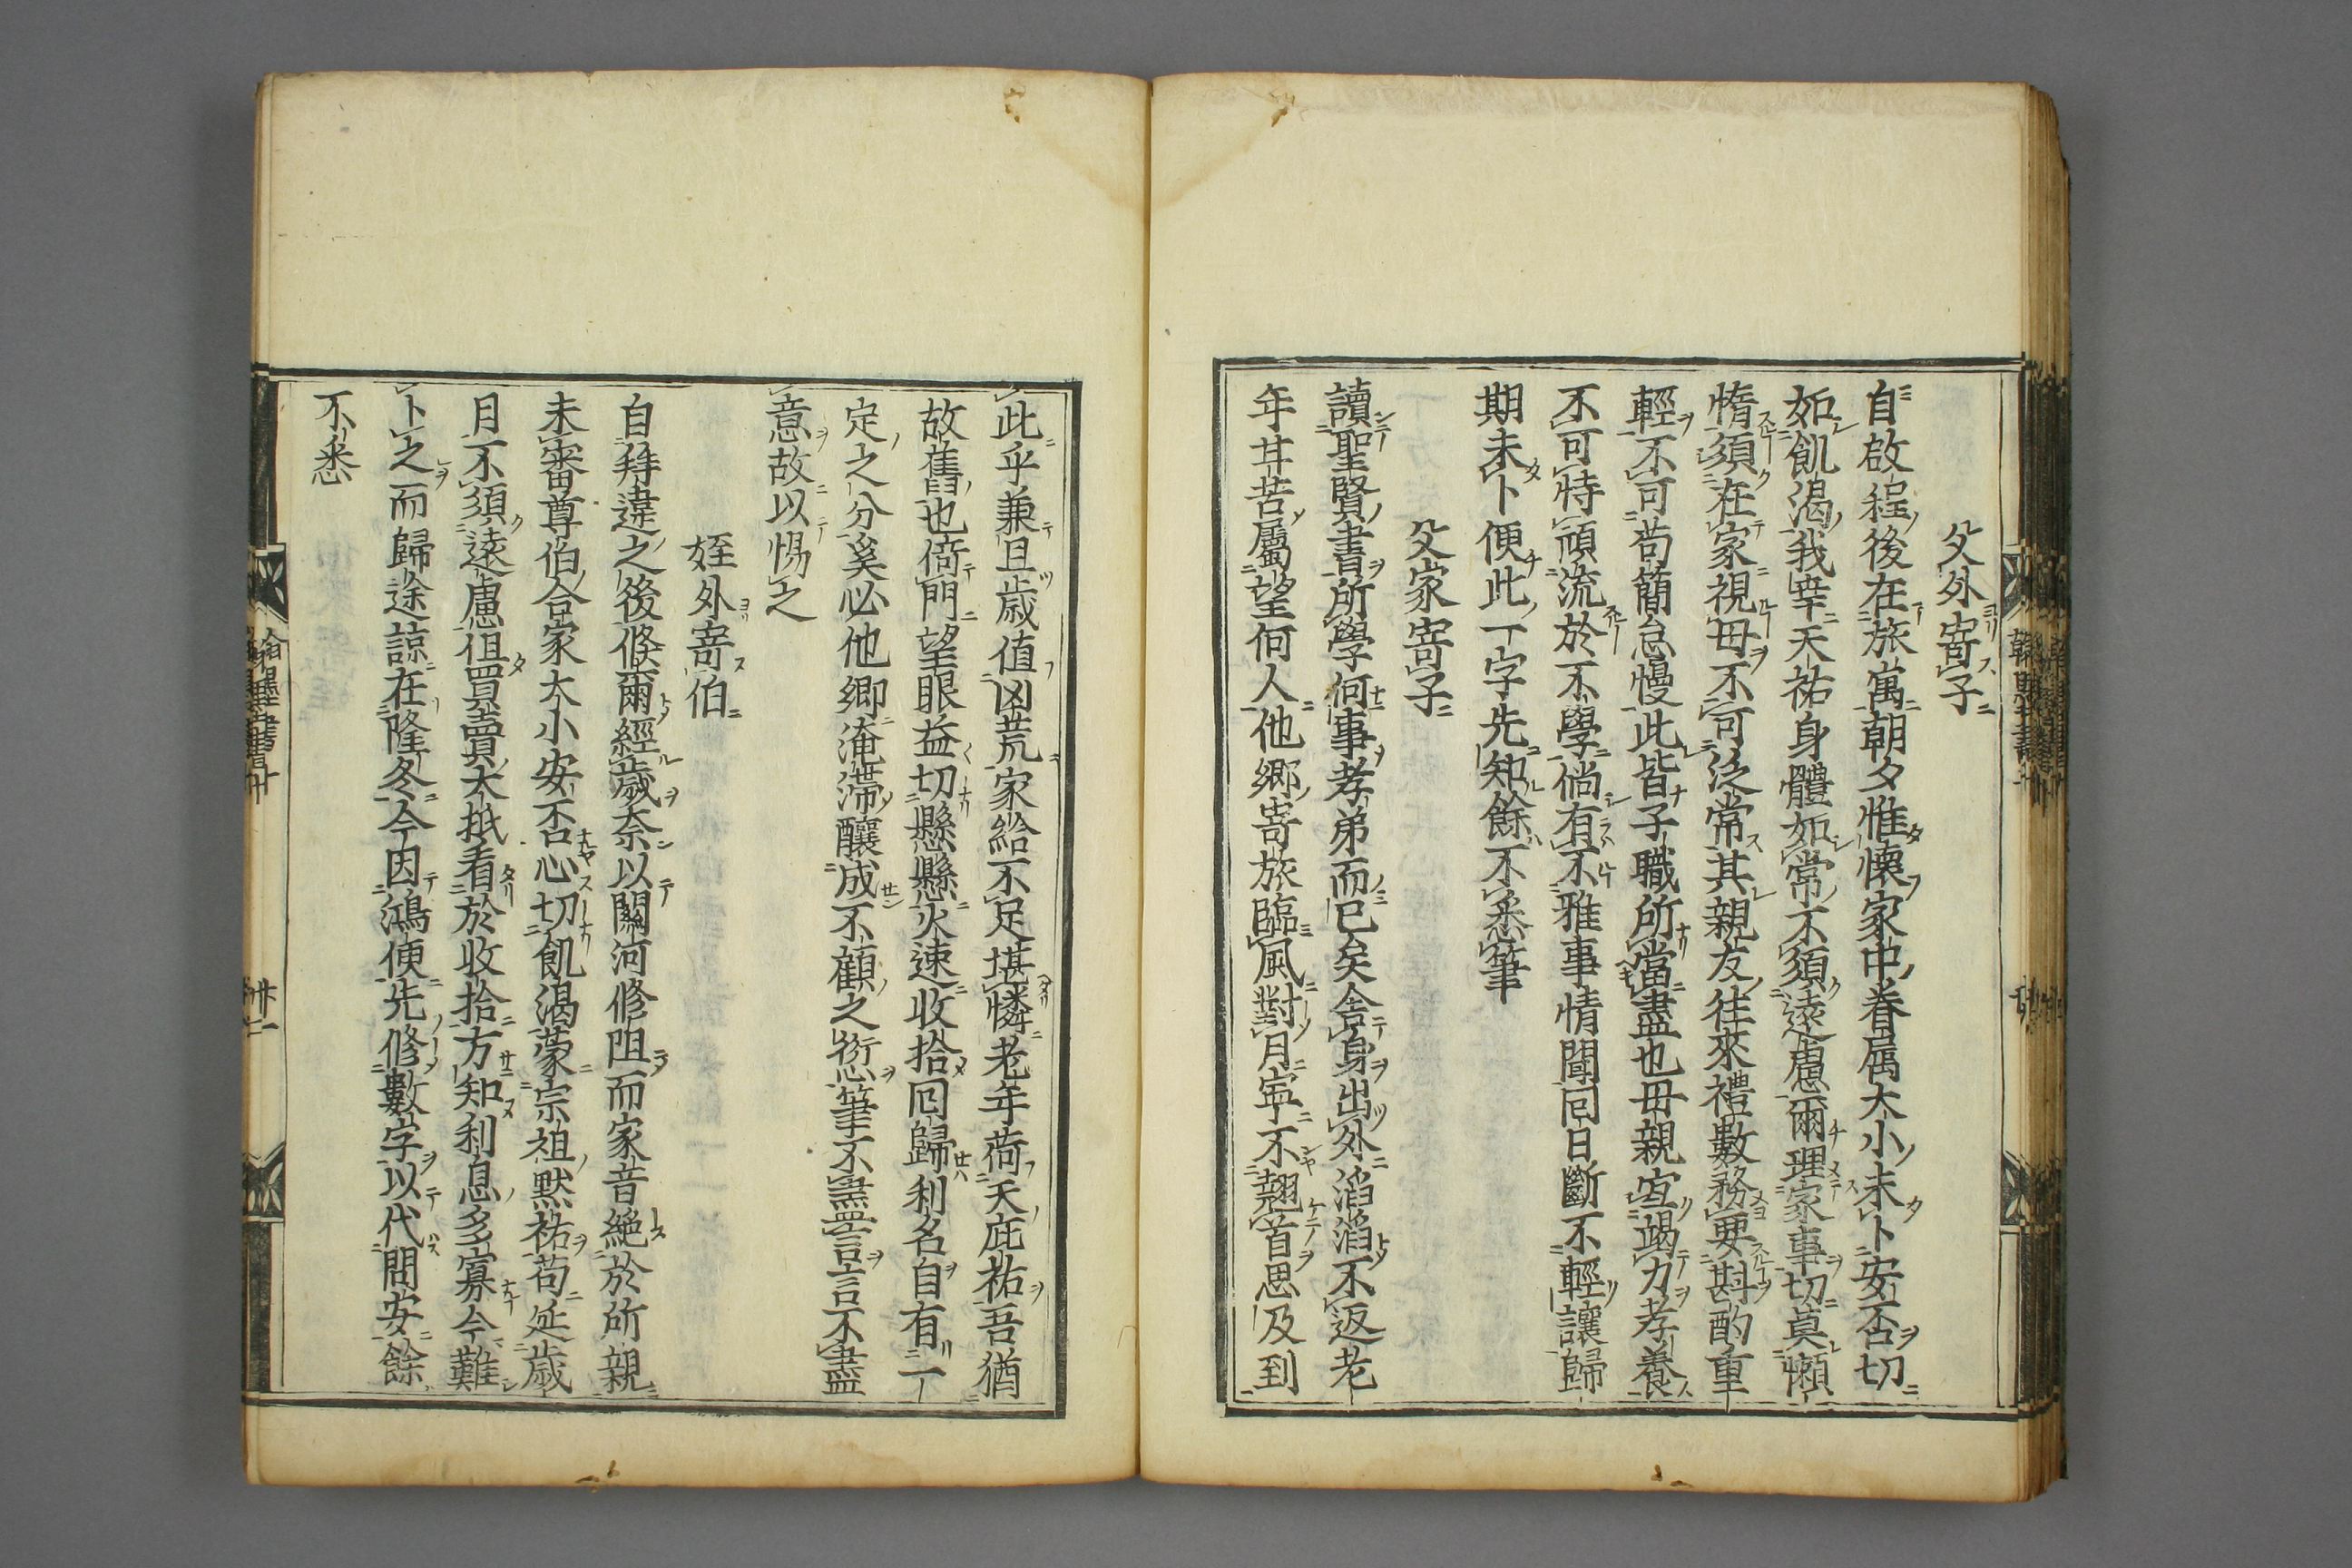 父外寄子
自啟程後在旅寓朝夕惟懷家中眷属大小未卜安否切
如飢渴我幸天祐身體如常不須遠慮爾理家事切莫懶
惰須在家視毋不可泛常其親友往來禮數務要斟酌重
輕不可苟簡怠慢此皆子職所當盡也毋親宜竭力孝養
不可恃頑流於不學倘有不雅事情聞囘日斷不輕讓歸
期未卜便此一字先知餘不悉筆
父家寄子
讀聖賢書所學何事孝弟而已矣舍身出外滔滔不返老
年甘苦屬望何人他鄉寄旅臨風對月寧不翹首思及到
此乎兼且歲值凶荒家給不足堪憐老年荷天庇祐吾猶
故舊也倚門望眼益切懸懸火速收拾囘歸利名自有一
定之分奚必他鄉淹滯釀成不顧之愆筆不盡言言不盡
意故以惕之
姪外寄伯
自拜違之後倏爾經歲奈以關河修阻而家音絕於所親
未審尊伯合家大小安否心切飢渴蒙宗祖默祐苟延歲
月不須遠慮但買賣大抵看於收拾方知利息多寡今難
卜之而歸途諒在隆冬今因鴻便先修數字以代問安餘
不悉